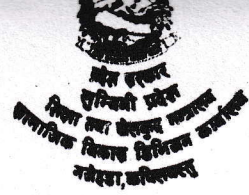 प्रदेश सरकार
लुम्बिनी प्रदेश
शिक्षा तथा खेलकुद मन्त्रालय
सामाजिक विकास डिभिजन कार्यालय
जगदीशपुर, कपिलवस्तु